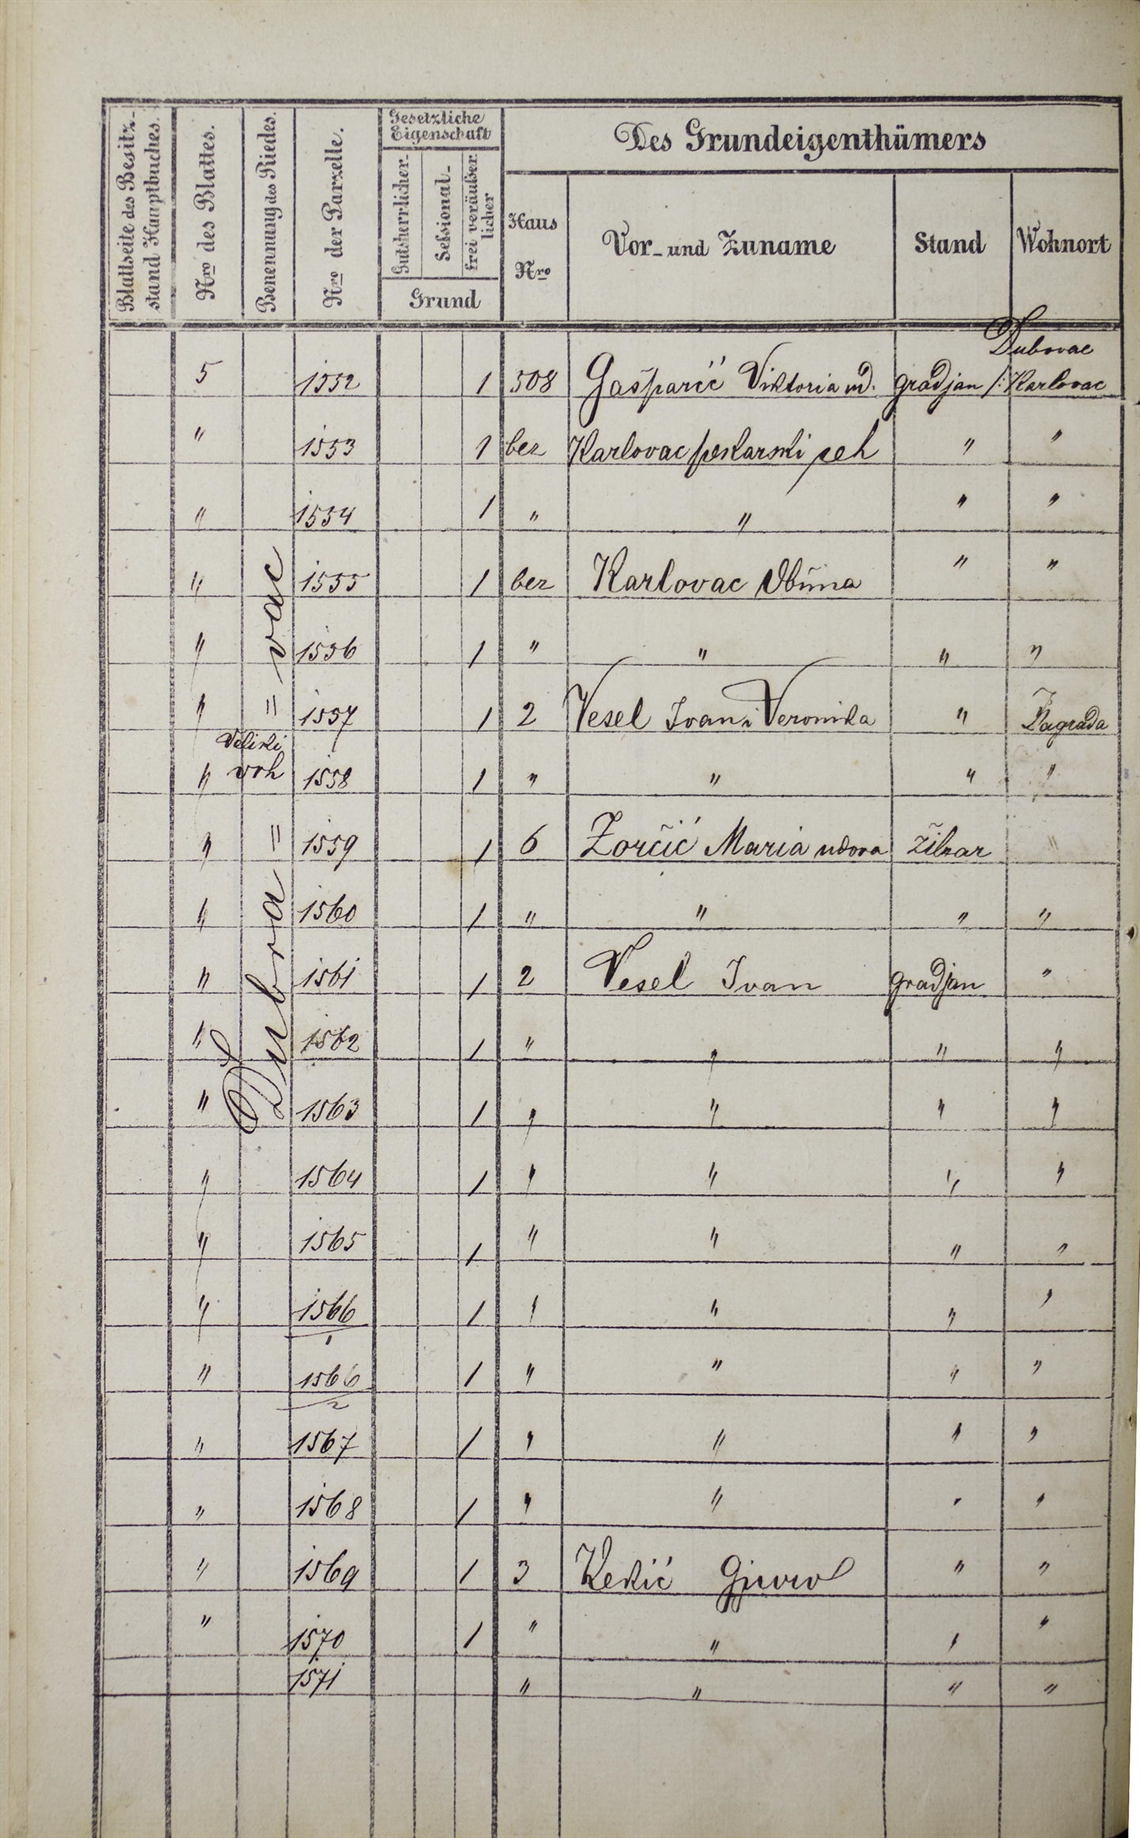 Blattseite des Besitz-stand Hauptbuches.
Nro des Blattes.
Benennung des Riedes.
Nro der Parzelle.
Gesetzliche Eigenschaft
Gutsherrlicher
Sessional-
frei veräußerlicher
Grund
Des Grundeigenthümers
Haus Nro
Vor- und Zuname
Stand
Wohnort
Dubovac
5 1552 1 508 Gašparić Viktoria ud. gradjan /: Karlovac
" 1553 1 bez Karlovac pekarski ceh " "
" 1554 1 " " " "
" 1555 1 bez Karlovac Obćina " "
" 1556 1 " " " "
" 1557 1 2 Vesel Ivan i Veronika " Zagrada
Veliki
" vrh 1558 1 " " " "
" 1559 1 6 Zorčić Maria udova "
" 1560 1 " " " "
" 1561 1 2 Vesel Ivan gradjan "
" 1562 1 " " " "
" 1563 1 " " " "
" 1564 1 " " " "
" 1565 1 " " " "
" 1566/1 1 " " " "
" 1566/2 1 " " " "
" 1567 1 " " " "
" 1568 1 " " " "
" 1569 1 3 Kekić Gjuro " "
" 1570 1 " " " "
1571 " " " "
Dubra = = vac